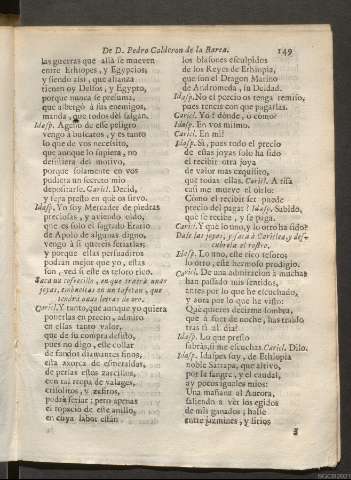 De D. Pedro Calderon de la Barca. 149
las guerras que allà se mueven
entre Ethiopes, y Egypcios,
y siendo assi, que alianza
tienen oy Delfos, y Egypto,
porque nunca se presuma,
que albergò à sus enemigos,
manda, que todos salgan.
Idasp. Ageno de esse peligro
vengo à buscaros, y es tanto
lo que de vos necessito,
que aunque lo supiera, no
desistiera del motivo,
porque solamente en vos
pudiera un secreto mio
depositarse. Caricl. Decid,
y sepa presto en què os sirvo.
Idasp. Yo soy Mercader de piedras
preciosas, y aviendo oido,
que es solo el sagrado Erario
de Apolo de algunas digno,
vengo à si quereis feriarlas;
y porque ellas persuadiros
podràn mejor que yo, estas
son, ved si este es tesoro rico.
Saca un cofrecillo, en que traerà unas
joyas, embueltas en un tafetan, que
tendrà unas letras de oro.
Caricl. Y tanto, que aunque yo quiera
ponerlas en precio, admiro
en ellas tanto valor,
que de su compra desisto,
pues no digo, este collar
de fondos diamantes finos,
esta axorca de esmeraldas,
de perlas estos zarcillos,
con tal tropa de balages,
crisolitos, y zafiros,
podrà feriar; pero apenas
el topacio de este anillo,
en cuya labor estàn
los blasones esculpidos
de los Reyes de Ethiopia,
que son el Dragon Marino
de Andromeda, su Deidad.
Idasp. No el precio os tenga remiso,
pues teneis con que pagarlas.
Caricl. Yo? dònde, ò còmo?
Idasp. En vos mismo.
Caricl. En mi?
Idasp. Si, pues todo el precio
de estas joyas solo ha sido
el recibir otra joya
de valor mas exquisito,
que todas ellas. Caricl. A risa
casi me mueve el oirlo:
Còmo el recibir ser puede
precio del pagar? Idasp. Sabido,
que se recibe, y se paga.
Caricl. Y què lo uno, y lo otro ha sido?
Dale las joyas, y saca à Cariclea, y des-
cubrela el rostro.
Idasp. Lo uno, este rico tesoro;
lo otro, este hermoso prodigio.
Caricl. De una admiracion à muchas
han passado mis sentidos,
antes por lo que he escuchado,
y aora por lo que he visto:
Què quieres decirme sombra,
que à flor de noche, has traido
tras ti al dia?
Idasp. Lo que presto
sabràs, si me escuchas. Caricl. Dilo.
Idasp. Idaspes soy, de Ethiopia
noble Satrapa, que altivo,
por la sangre, y el caudal,
ay pocos iguales mios:
Una mañana al Aurora,
saliendo à ver los egidos
de mis ganados; hallè
entre jazmines, y lirios